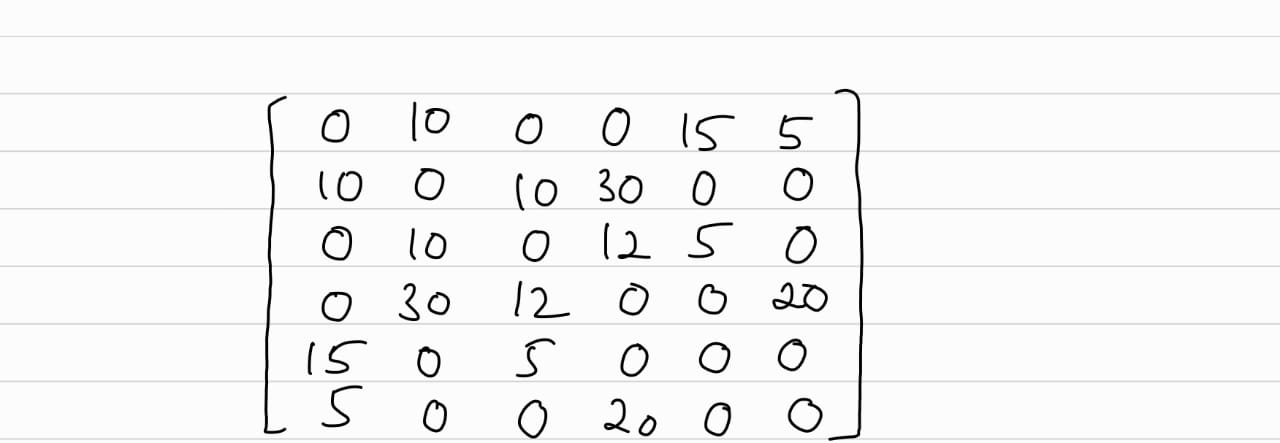 0 10 0 0 15 5
10 0 10 30 0 0
0 10 0 12 5 0
0 30 12 0 0 20
15 0 5 0 0 0
5 0 0 20 0 0